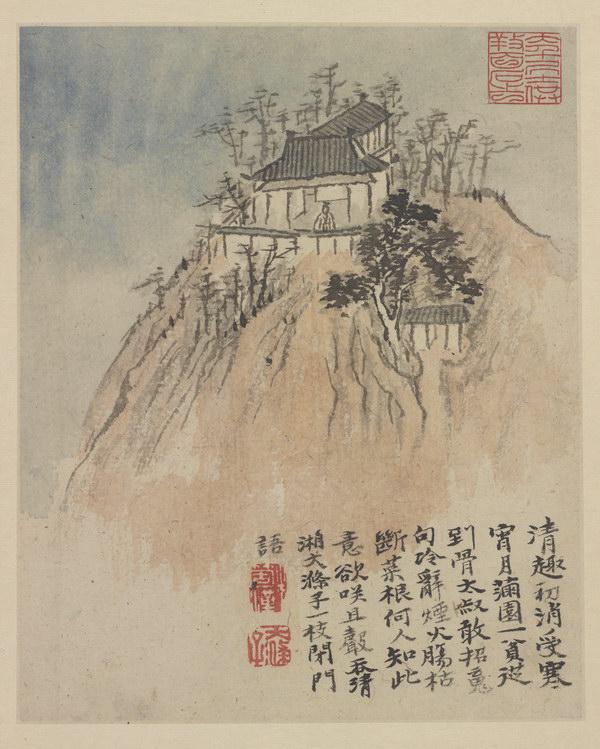 清趣初消受寒
宵月滿園一貧從
到骨太寂敢招䰟
句冷辭煙火腸枯
斷菜根何人知此
意欲咲且聲吞清
湘大滌子一枝閉門
語